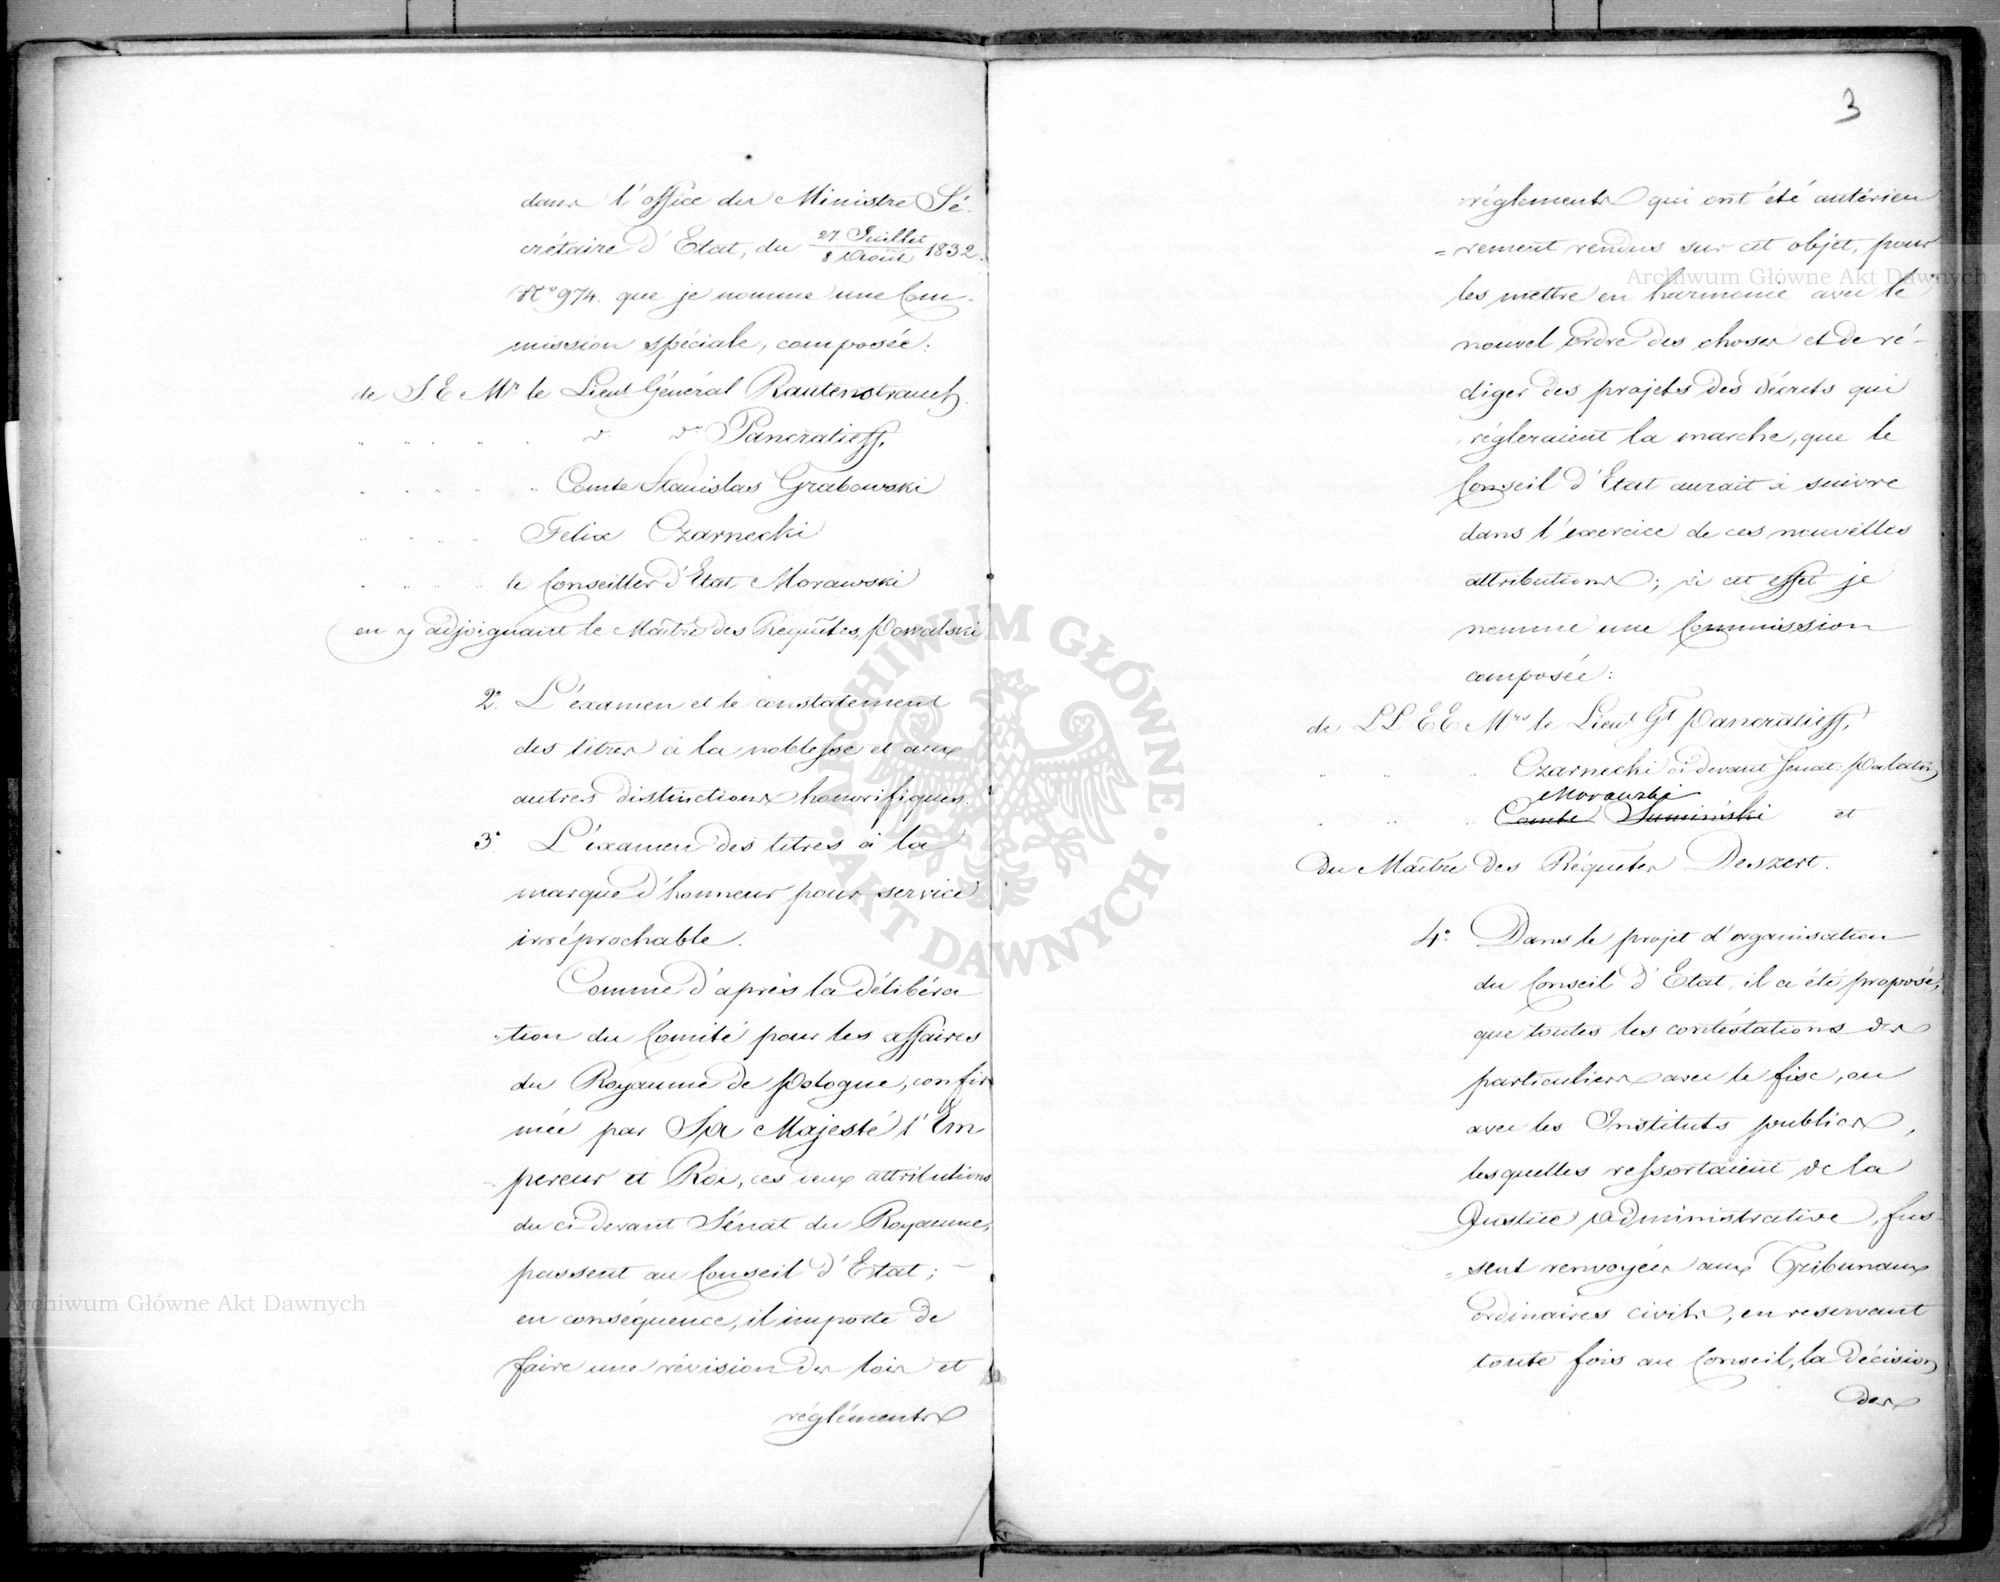 dans l'office du Ministre Sé-
crétaire d'Etat, du 27 Juillet / 8 Août 1832.
N° 974. que je nomme une Com-
mission spéciale, composée:
de S E Mr le Lieut Général Rautenstrauch.
" " " " " d° d° Pancratieff,
" " " " " Comte Stanislas Grabowski
" " " " Felix Czarnecki
" " " le Conseiller d'Etat Morawski
en y adjoignant le Maître des Requêtes,
2° L'éxamen et le constatement
des titres à la noblesse et aux
autres distinctions honorifiques.
3° L'éxamen des titres à la
marque d'honneur pour service
irréprochable.
Comme d'après la délibéra
-tion du Comité pour les affaires
du Royaume de Pologne, confir
mée par Sa Majesté l'Em
-pereur et Roi, ces deux attributions
du ci-devant Sénat du Royaume,
passent au Conseil d'Etat; -
en conséquence, il importe de
faire une révision des lois et
réglements
3
réglements qui ont été antérieu
=rement rendus sur cet objet, pour
les mettre en harmonie avec le
nouvel ordre des choses et de ré-
diger des projets des décrets qui
régleraient la marche, que le
Conseil d'Etat aurait à suivre
dans l'exercice de ces nouvelles
attributions; à cet effet je
nomme une Commission
composée:
de LL EE Mrs le Lieut Gl Pancratieff,
" " " Czarnecki ci devant Senat: Palatin
Morawski
" " " Comte Suminski et
du Maître des Réquêtes Deszert.
4° Dans le projet d'organisation
du Conseil d'Etat, il a été proposé,
que toutes les contéstations des
particuliers avec le fisc, ou
avec les Instituts publics,
lesquelles ressortaient de la
Justice Administrative, fus-
=sent renvoyées aux Tribunaux
ordinaires civils, en reservant
toute fois au Conseil, la décision
des
Archiwum Główne Akt Dawnych
Archiwum Główne Akt Dawnych
ARCHIWUM GŁÓWNE · AKT DAWNYCH ·